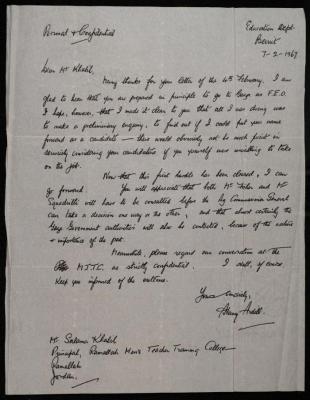 Personal & Confidential
Education Dept.
Beirut
7-2-1967
Dear Mr Khalil,
Many thanks for your letter of the 4th February. I am
glad to hear that you are prepared in principle to go to Gaza as F.E.O.
I hope, however, that I made it clear to you that all I was doing was
to make a preliminary enquiry, to find out if I could put your name
forward as a candidate — there would obviously not be much point in
seriously considering your candidature if you yourself were unwilling to take
on the job.
Now that this first hurdle has been cleared, I can
go forward. You will appreciate that both Mr and Mr
will have to be consulted before the Commissioner General
can take a decision one way or the other, and that almost certainly the
Gaza Government authorities will also be contacted, because of the nature
& importance of the post.
Meanwhile, please regard our conversation at the
M.T.T.C. as strictly confidential. I shall, of course,
keep you informed of the outcome.
Yours sincerely,
Mr Khalil
Principal, Ramallah Men's Teacher Training College
Ramallah
Jordan.